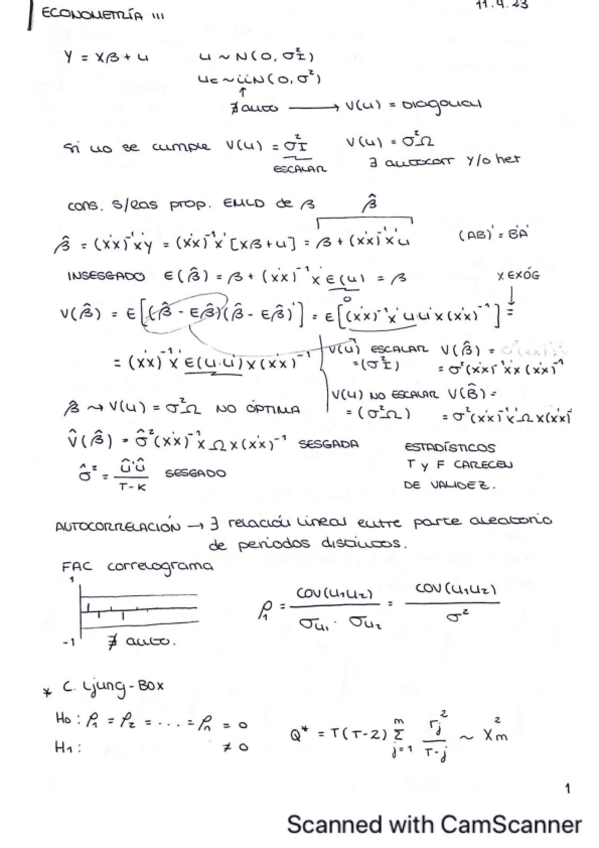 ECONOMETRÍA III
11.4.23
Y = Xβ + u    u ~ N(0, σ²I)
ut ~ iiN(0, σ²)
↑
∄ auto → V(u) = DIAGONAL
Si no se cumple V(u) = σ²I    V(u) = σ²Ω
ESCALAR    ∃ autocorr y/o het
cons. s/las prop. EMLO de β    β̂
β̂ = (X'X)⁻¹X'Y = (X'X)⁻¹X'[Xβ+u] = β + (X'X)⁻¹X'u    (AB)' = B'A'
INSESGADO E(β̂) = β + (X'X)⁻¹X'E(u) = β    X EXÓG
0    ↓
V(β̂) = E[(β̂ - Eβ̂)(β̂ - Eβ̂)'] = E[(X'X)⁻¹X'uu'X(X'X)⁻¹] =
= (X'X)⁻¹X'E(u.u')X(X'X)⁻¹    V(u) ESCALAR V(β̂) =
=(σ²I)    = σ²(X'X)⁻¹X'X(X'X)⁻¹
β̂ → V(u) = σ²Ω NO ÓPTIMA    V(u) NO ESCALAR V(β̂) =
= (σ²Ω)    = σ²(X'X)⁻¹X'ΩX(X'X)⁻¹
V̂(β̂) = σ̂²(X'X)⁻¹X'ΩX(X'X)⁻¹ SESGADA    ESTADÍSTICOS
σ̂² = û'û / T-K SESGADO    T y F CARECEN
DE VALIDEZ.
AUTOCORRELACIÓN → ∃ relación lineal entre parte aleatoria
de periodos distintos.
FAC correlograma
1
ρ₁ = COV(u₁u₂) / σu₁ · σu₂ = COV(u₁u₂) / σ²
-1 ∄ auto.
* C. Ljung-Box
H₀: ρ₁ = ρ₂ = .... = ρn = 0    Q* = T(T-2) Σ j=1 m rj² / T-j ~ X²m
H₁: ≠ 0
1
Scanned with CamScanner